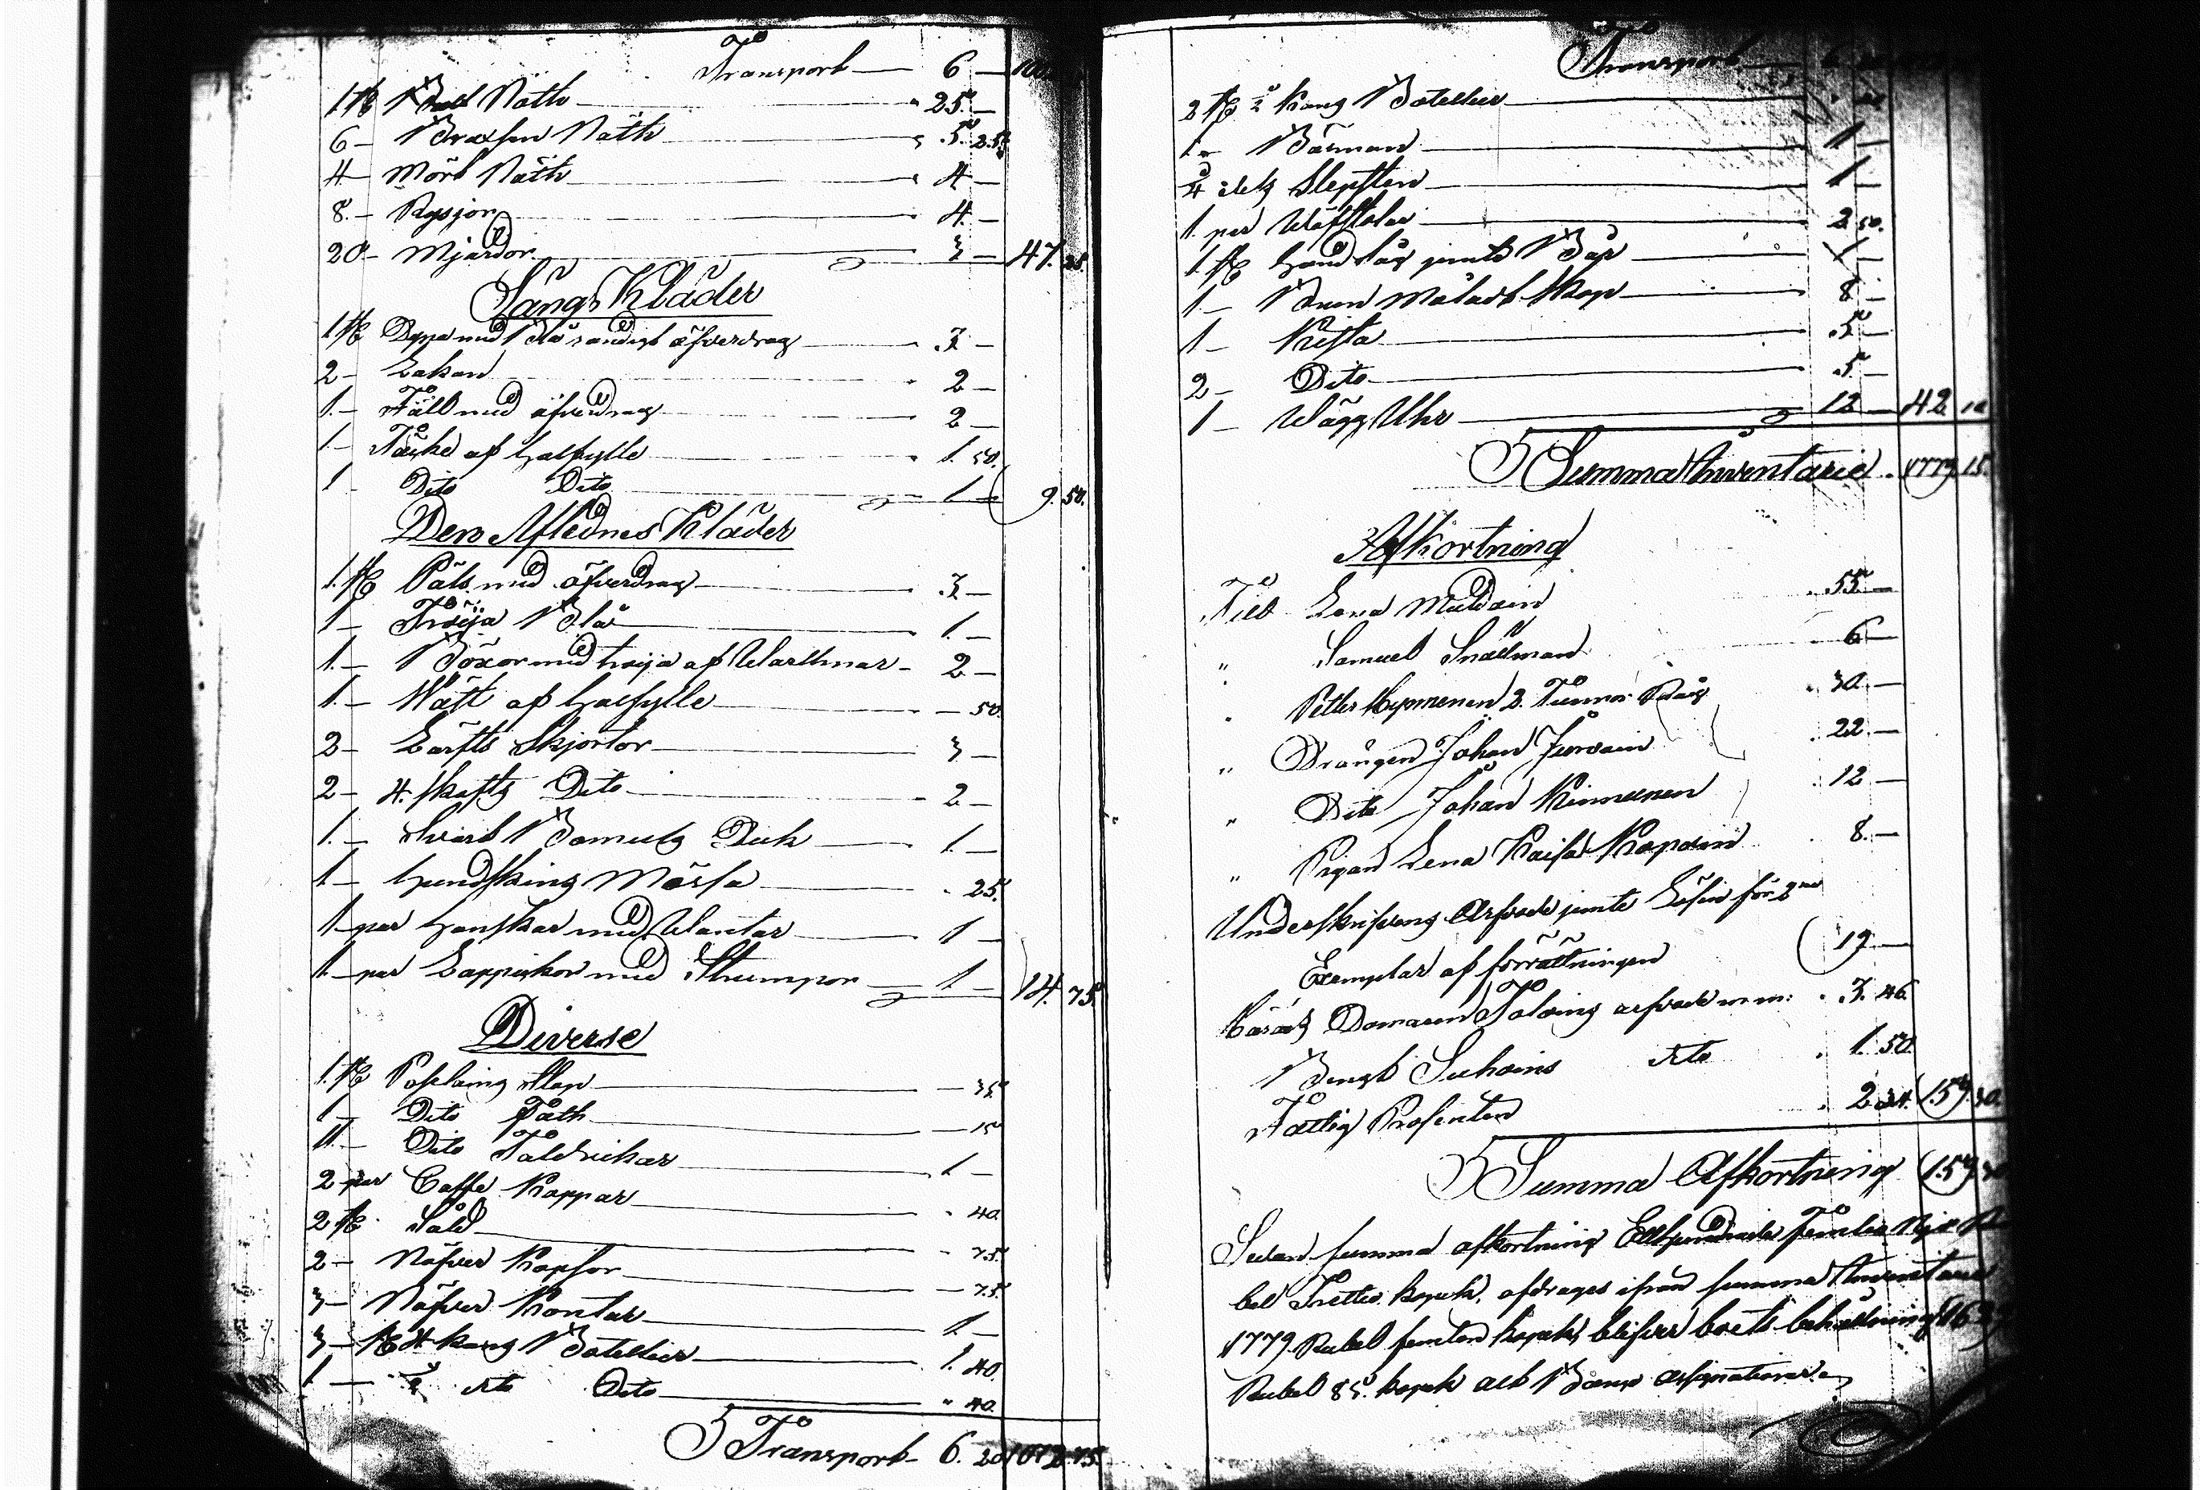 Transport — 6 —
1 st Nāth — 25 —
6 — Braxsen Näth — 5 25
4 — Mört Näth — 4 —
8 — Rysjor — 4 —
20 — Mjärdor — 3 — 47. 25.
Sängs Kläder
1 st med Blå randigt öfverdrag — 3 —
2 — Lakan — 2 —
1 — Fäll med öfverdrag — 2 —
1 — Täcke af halfylle — 1. 50.
1 — Dito Dito — 1 — 9. 50.
Den Aflednes Kläder
1 st Päls med öfverdrag — 3 —
1 — Tröija Blå — 1. —
1. — Böxor med tröija af Wallmar — 2 —
1. — Wäst af halfylle — 50.
2 — Lärfts Skjortor — 3 —
2 — 4. skafts Dito — 2 —
1. — Svart Bomuls Duk — 1. —
1 — hundskins Mössa — 25.
1 par hanskar med Wantar — 1 —
1 par Lappskor med Strumpor — 1 — 14. 75.
Diverse
1. st Poslains — 35.
1 — Dito Fath — 15
11. — Dito Taldrickar — 1 —
2 par Caffe Koppar — 40
2 st Såld — 75.
2 — Näfver Kopsor — 75.
3 — Näfver Kontar — 1. —
3 — st 4 kang Botellier — 1. 40
1 — dto Dito — 40.
Transport — 6. 20
Transport — 6
2 st kang Botellier
1 — Bösman — 1 —
Slepsten — 1 —
1. par Wäfstolar — 2 50.
1. st hand såg jemte Bår — 1 —
1 — Brun Måladt Skåp — 8 —
1 — Kista — 5 —
2 — Dito — 5 —
1 — Wägg Uhr — 12 — 42 10
Summa Inventarie 1779. 15.
Afkortning
Till Lena — 55 —
" Samuel Snällman — 6 —
" Petter Hyvönen 2. Tunnor Råg — 30. —
" Drängen Johan — 22. —
" Dito Johan Kinnunen — 12 —
" Pigan Lena Kaisa — 8. —
Underskrifvens Arfvode jemte Lösen för 2ne
Exemplar af förrättningen — 19 —
Domaren arfvode m: m: — 3. 46.
Bengt dto — 1. 50.
Fattig Prosenten — 2 34. 159. 30.
Summa Afkortning 159. 30
Sedan summa afkortning Etthundrade Femtio Nijo Ru-
bel Trettio kopek. afdrages ifrån summa Inventarie
1779 Rubel femton kopek, blifver boets behållning 1619
Rubel 85. kopek allt Banco assignationer.